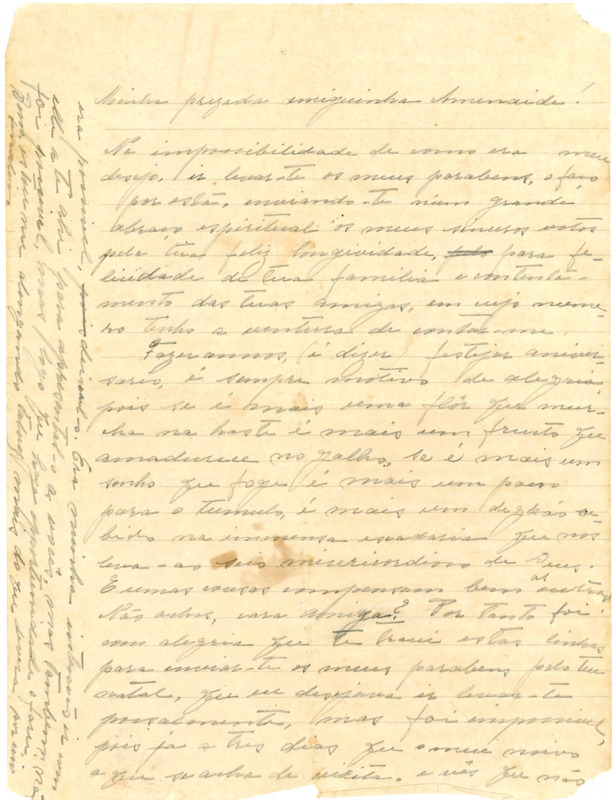 Minha prezada amiguinha Amenaide!
Na impossibilidade de como era meu
desejo, ir levar-te os meus parabens, o faço
por esta, enviando-te n'um grande
abraço espiritual os meus sinceros votos
pela tua feliz longividade, para fe-
licidade de tua familia e contenta-
mento das tuas amigas, em cujo nume-
ro tenho a ventura de contar-me.
Fazer annos, (é dizer) festejar aniver-
sario, é sempre motivo de alegria,
pois se é mais uma flôr que mur-
cha na haste é mais um fructo que
amadurece no galho, se é mais um
sonho que foge é mais um passo
para o tumulo, é mais um degráo su-
bido na immensa escadaria que nos
leva ao seio misericordioso de Deus.
E umas cousas compensam bem as outras
Não achas, cara amiga? Por tanto foi
com alegria que te tracei estas linhas
para enviar-te os meus parabens pelo teu
natal, que eu desejava ir levar-te
pessoalmente, mas foi impossivel,
pois já a tres dias que o meu noivo
a que se acha de visita. e vês que não
era possivel, deixal-o. Era minha intenção ir com
elle a té ahi para apresental-o a vocês, mas tambem não
foi possivel, mas logo que haja opportunidade o farei.